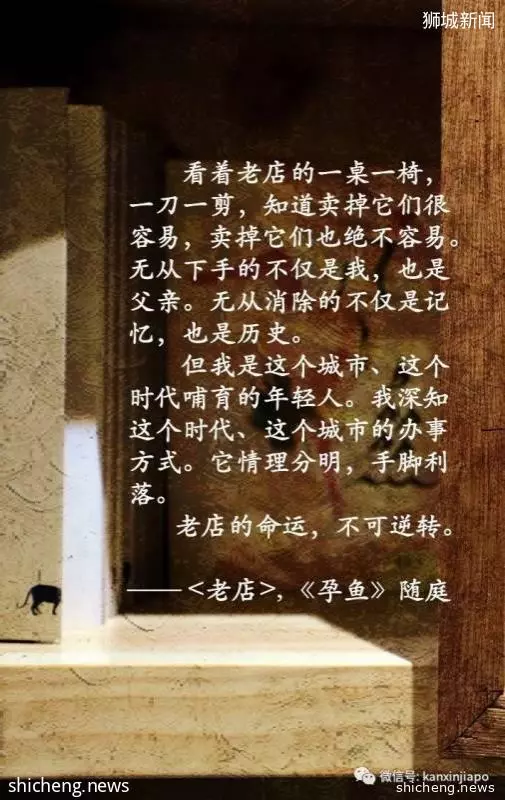 狮城新闻
看着老店的一桌一椅，
一刀一剪，知道卖掉它们很
容易，卖掉它们也绝不容易。
无从下手的不仅是我，也是
父亲。无从消除的不仅是记
忆，也是历史。
但我是这个城市、这个
时代哺育的年轻人。我深知
这个时代、这个城市的办事
方式。它情理分明，手脚利
落。
老店的命运，不可逆转。
——<老店>，《孕鱼》随庭
微信号: kanxinjiapo
shicheng.news
shicheng.news